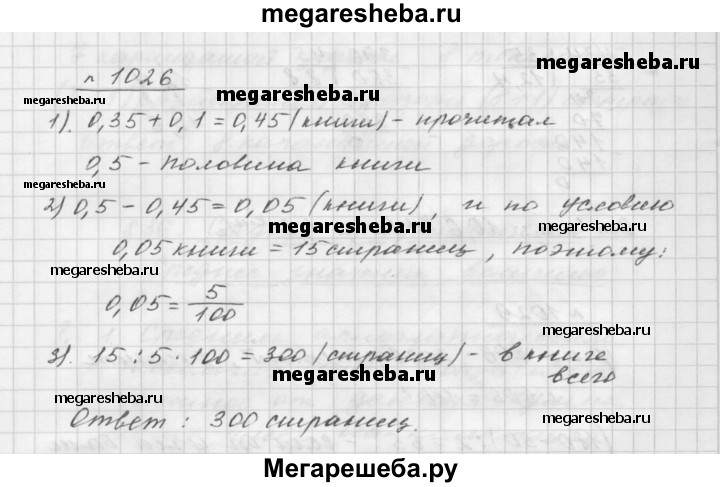 megaresheba.ru
№ 1026
megaresheba.ru
megaresheba.ru
megaresheba.ru
1). 0,35 + 0,1 = 0,45 (книги) - прочитал
0,5 - половина книги
megaresheba.ru
megaresheba.ru
2) 0,5 - 0,45 = 0,05 (книги), и по условию
megaresheba.ru
megaresheba.ru
0,05 книги = 15 страниц, поэтому:
megaresheba.ru
0,05 = 5/100
megaresheba.ru
3). 15 : 5 · 100 = 300 (страниц) - в книге
всего
megaresheba.ru
megaresheba.ru
megaresheba.ru
Ответ : 300 страниц.
Мегарешеба.ру